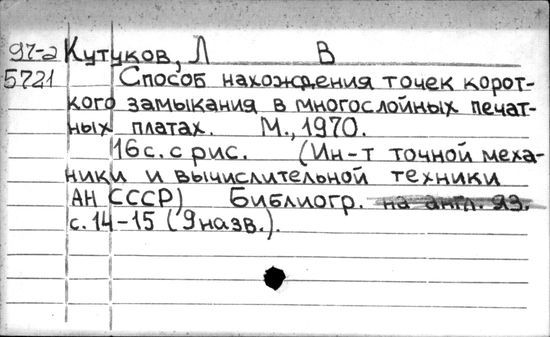 97-2 Кутуков, Л В
5721 Способ нахождения точек корот-
кого замыкания в многослойных печат-
ных платах. М., 1970.
16 с. с рис. (Ин-т точной меха-
ники и вычислительной техники
АН СССР) Библиогр. на англ. яз.
с. 14-15 (9 назв.).